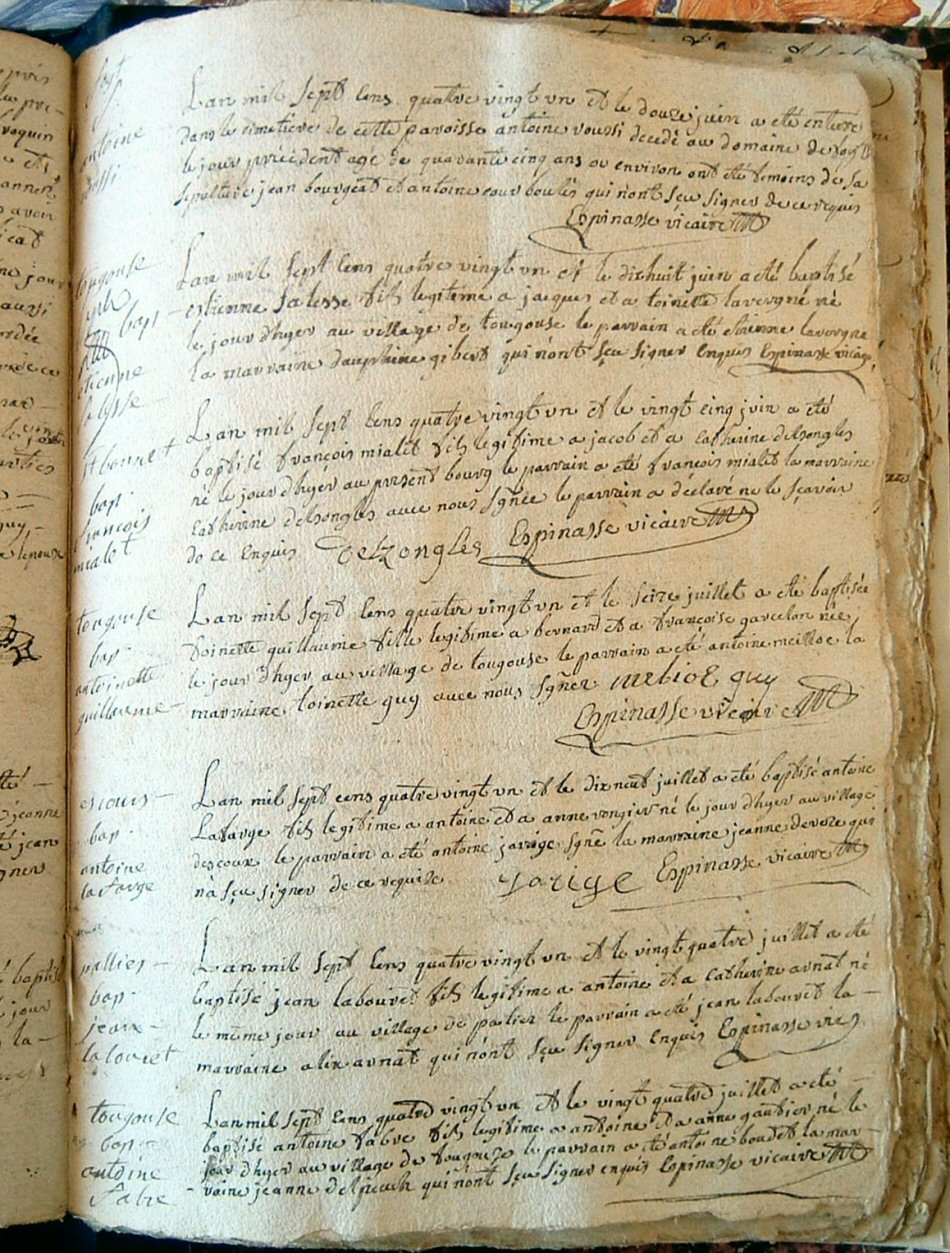 antoine
Lan mil sept cens quatre vingt un et le douze juin a été enterré
dans le cimetiere de cette paroisse antoine roussi decedé au domaine de
le jour précédent agé de quarante cinq ans ou environ ont été temoins de sa
sepulture jean bourgeat et antoine courboulès qui n'ont sçu signer de ce requis
Espinasse vicaire
tougouse
bap
etienne
salesse
Lan mil sept cens quatre vingt un et le dixhuit juin a été baptisé
estienne salesse fils legitime a jacques et a toinette lavergne né
le jour dhyer au village de tougouse le parrain a été etienne lavergne
la marraine dauphine gibert qui n'ont sçu signer enquis Espinasse vicaire
st bonnet
bap
françois
mialet
Lan mil sept cens quatre vingt un et le vingt cinq juin a été
baptisé françois mialet fils legitime a jacob et a catherine delsongles
né le jour dhyer au present bourg le parrain a été françois mialet la marraine
catherine delsongles avec nous signée le parrain a déclaré ne le scavoir
de ce enquis delzongles Espinasse vicaire
tougouse
bap
antoinette
guillaume
Lan mil sept cens quatre vingt un et le seize juillet a été baptisée
toinette guillaume fille legitime a bernard et a françoise garcelon née
le jour dhyer au village de tougouse le parrain a été antoine meilloc la
marraine toinette guy avec nous signer melioc guy
Espinasse vicaire
escours
bap
antoine
lafarge
Lan mil sept cens quatre vingt un et le dix neuf juillet a été baptisé antoine
Lafarge fils legitime a antoine et a anne rongier né le jour dhyer au village
descoux le parrain a été antoine jarrige signé la marraine jeanne devoze qui
n'a sçu signer de ce requise jarige Espinasse vicaire
pallier
bap
jean
labouret
Lan mil sept cens quatre vingt un et le vingt quatre juillet a été
baptisé jean labouret fils legitime a antoine et a catherine arnat né
le même jour au village de palier le parrain a été jean labouret la
marraine alix arnat qui n'ont sçu signer enquis Espinasse vic
tougouse
bap
antoine
fabre
Lan mil sept cens quatre vingt un et le vingt quatre juillet a été
baptisé antoine fabre fils legitime a antoine et a anne gautier né le
jour dhyer au village de tougouse le parrain a été antoine boudet la mar-
raine jeanne delpeuch qui n'ont sçu signer enquis Espinasse vicaire